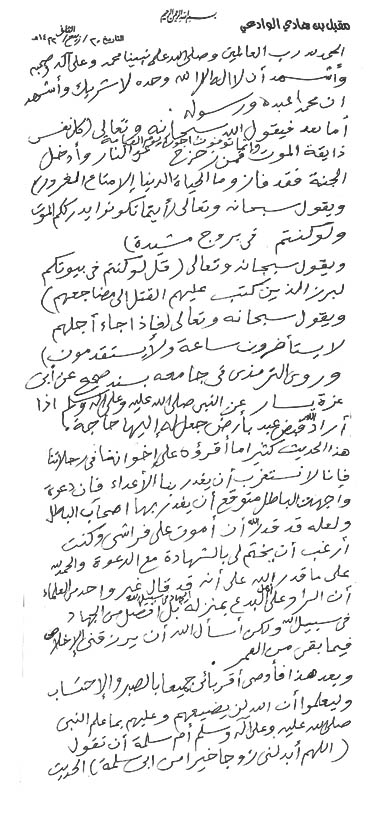 بسم الله الرحمن الرحيم
مقبل بن هادي الوادعي
التاريخ ٣٠/ربيع الثاني/١٤٢٢هـ
الحمد لله رب العالمين وصلى الله على نبينا محمد وعلى آله وصحبه
وأشهد أن لا إله إلا الله وحده لا شريك له وأشهد
ان محمدا عبده ورسوله.
أما بعد فيقول الله سبحانه وتعالى (كل نفس
ذايقة الموت وإنما توفون أجوركم يوم القيامة فمن زحزح عن النار وأدخل
الجنة فقد فاز وما الحياة الدنيا إلا متاع الغرور)
ويقول سبحانه وتعالى (أينما تكونوا يدرككم الموت
ولو كنتم في بروج مشيدة)
ويقول سبحانه وتعالى (قل لو كنتم في بيوتكم
لبرز الذين كتب عليهم القتل إلى مضاجعهم)
ويقول سبحانه وتعالى (فإذا جاء أجلهم
لا يستأخرون ساعة ولا يستقدمون)
وروى الترمذي في جامعه بسند صحيح عن أبي
عزة يسار عن النبي صلى الله عليه وعلى آله وسلم اذا
أراد الله قبض عبد بأرض جعل له إليها حاجة.
هذا الحديث كثيرا ما أقرؤه على إخواننا في رحلاتنا
فإننا لا نستغرب أن يغدر بنا الأعداء فإن دعوة
واجهت الباطل متوقع أن يغدر بها أصحاب الباطل
ولعله قد قدر الله أن أموت على فراشي وكنت
أرغب أن يختم لي بالشهادة مع الدعوة والحمد لله
على ما قدر الله على أنه قد قال غير واحد من العلماء
أن الرد على أهل البدع بمنزلة الجهاد في سبيل الله بل أفضل من الجهاد
في سبيل الله ولكن أسأل الله أن يرزقني الإخلاص
فيما بقي من العمر.
وبعد هذا فأوصي أقربائي جميعا بالصبر والإحتساب
وليعلموا أن الله لن يضيعهم وعليهم بما علم النبي
صلى الله عليه وعلى آله وسلم أم سلمة أن تقول
(اللهم أبدلني زوجا خيرا من ابي سلمة) الحديث